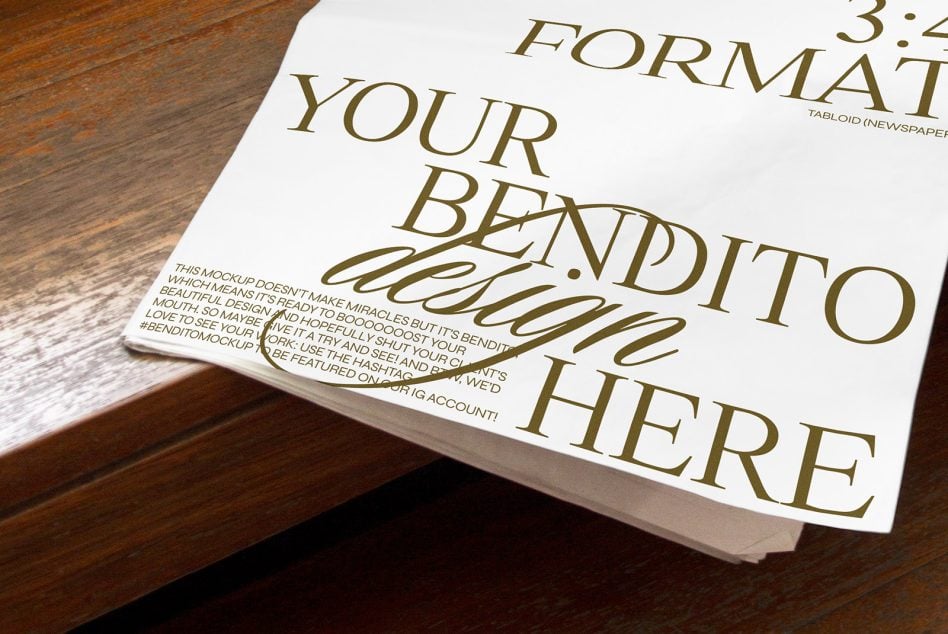 3:4
FORMAT
TABLOID (NEWSPAPER
YOUR
BENDITO
design
HERE
THIS MOCKUP DOESN'T MAKE MIRACLES BUT IT'S BENDITO,
WHICH MEANS IT'S READY TO BOOOOOOOST YOUR
BEAUTIFUL DESIGN AND HOPEFULLY SHUT YOUR CLIENT'S
MOUTH. SO MAYBE GIVE IT A TRY AND SEE! AND BTW, WE'D
LOVE TO SEE YOUR WORK: USE THE HASHTAG
#BENDITOMOCKUP TO BE FEATURED ON OUR IG ACCOUNT!